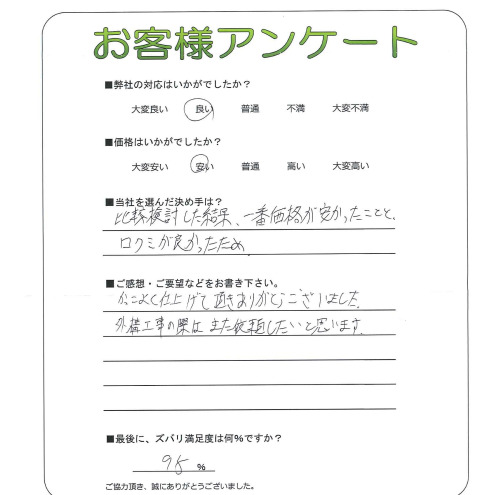 お客様アンケート
■弊社の対応はいかがでしたか？
大変良い 良い 普通 不満 大変不満
■価格はいかがでしたか？
大変安い 安い 普通 高い 大変高い
■当社を選んだ決め手は？
比較検討した結果、一番価格が安かったことと、
口クミが良かったため
■ご感想・ご要望などをお書き下さい。
かっこよく仕上げて頂きありがとうございました。
外構工事の際は また依頼したいと思います。
■最後に、ズバリ満足度は何％ですか？
95 ％
ご協力頂き、誠にありがとうございました。